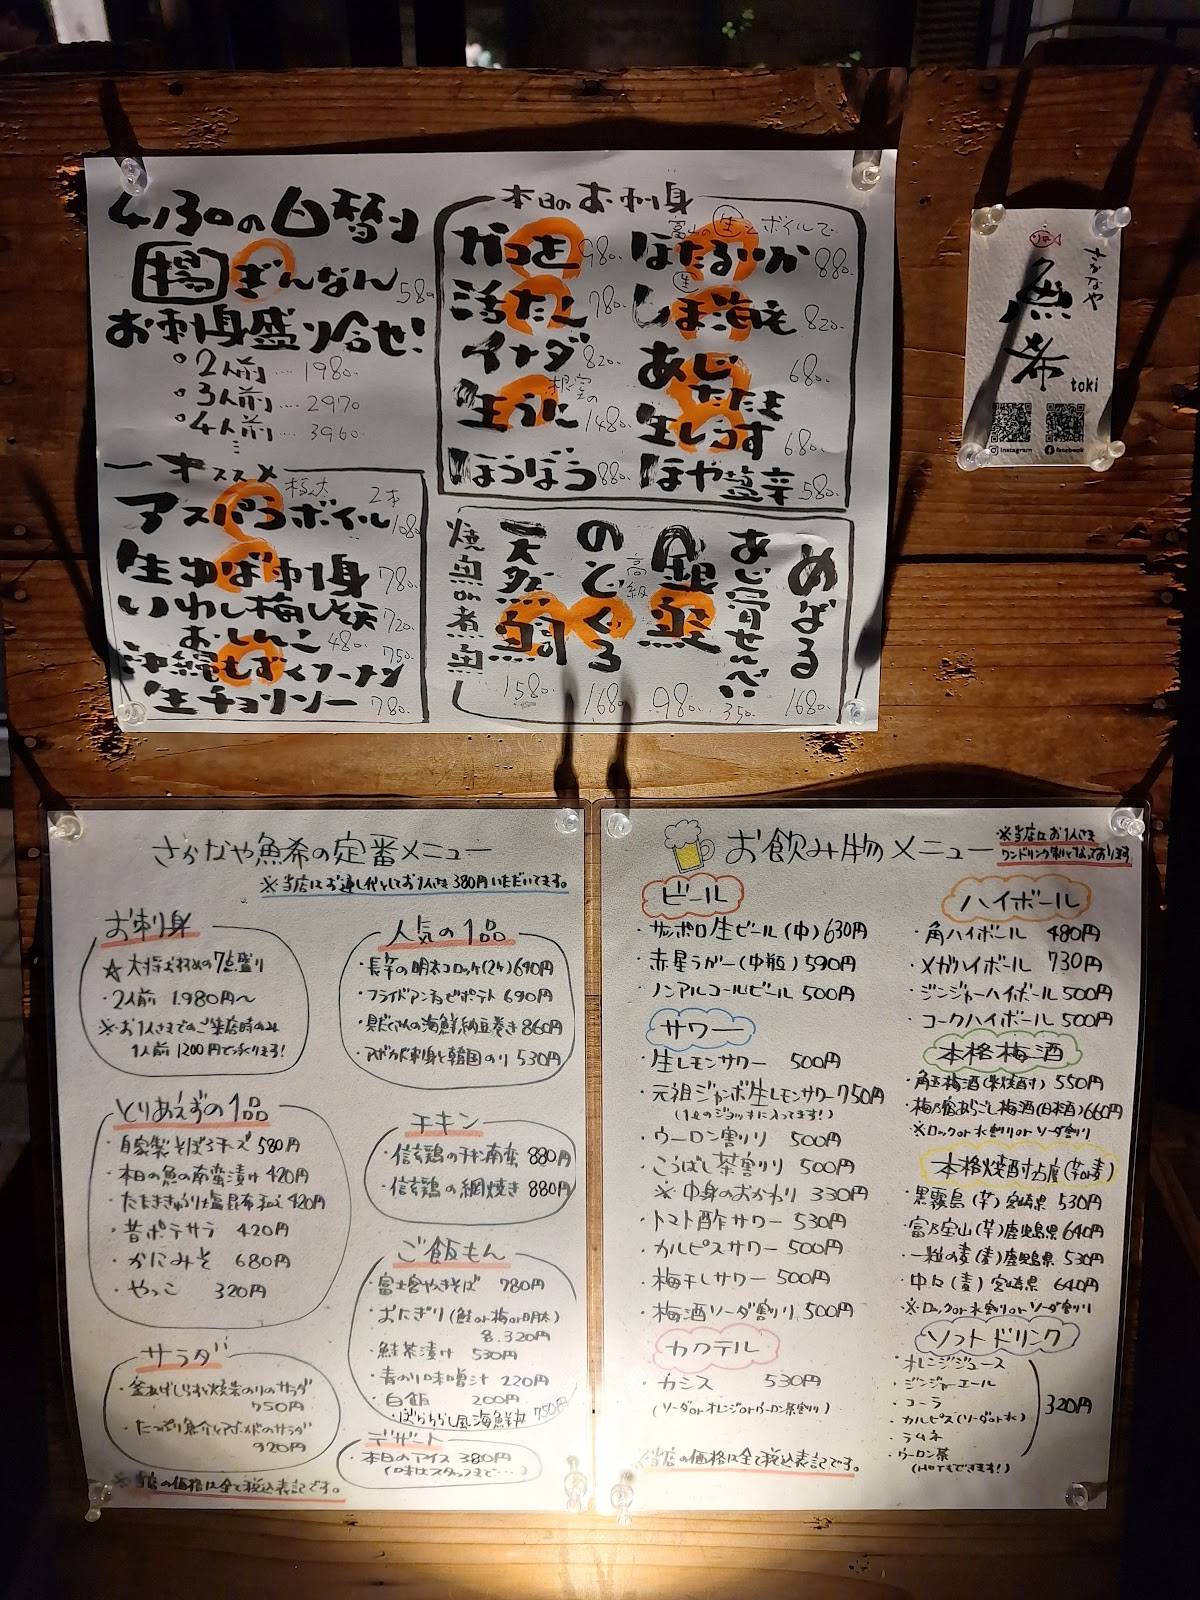 4/30の日替り
揚 ぎんなん 580
お刺身盛り合せ!
・2人前 .... 1980.
・3人前 .... 2970
・4人前 .... 3960.
オススメ
アスパラボイル 極太 2本 1080.
生ゆば刺身 780.
いわし梅しそ天 720.
おしんこ 480.
沖縄もずく 750.
生チョリソー 780.
本日のお刺身
かつを 980.
活たこ 780.
イナダ 820.
生うに 根室の 1480.
ほうぼう 880.
富山の 生とボイルで
ほたるいか 880.
生 しま海老 820.
あじ 680.
たたき
生しらす 680.
ほや塩辛 580.
めばる 1680.
あじ骨せんべい 350.
高級 銀 980.
のどぐろ 1680.
天然鯛 1580.
焼魚or煮魚
さかなや
魚希
toki
Instagram
facebook
さかなや魚希の定番メニュー
※当店はお通し代としてお1人さま380円いただいてます。
お刺身
☆大将おすすめの7点盛り
・2人前 1.980円〜
※お1人さまでのご来店時のみ
1人前1200円で承ります!
とりあえずの1品
・自家製そぼろチーズ 580円
・本日の魚の南蛮漬け 420円
・たたききゅうり塩昆布和え 420円
・昔ポテサラ 420円
・かにみそ 680円
・やっこ 320円
サラダ
・釜あげしらすと焼岩のりのサラダ
750円
・たっぷり魚介とアボカドのサラダ
920円
※当店の価格は全て税込表記です。
人気の1品
・長芋の明太コロッケ(2ケ) 690円
・フライドアンチョビポテト 690円
・具だくさんの海鮮納豆巻き 860円
・アボカド刺身と韓国のり 530円
チキン
・信玄鶏のチキン南蛮 880円
・信玄鶏の網焼き 880円
ご飯もん
・富士宮やきそば 780円
・おにぎり(鮭or梅or明太)
各.320円
・鮭茶漬け 530円
・青のり味噌汁 220円
・白飯 200円
・ばらちらし風海鮮丼 750円
デザート
・本日のアイス 380円
(味はスタッフまで・・・)
お飲み物メニュー
※当店はお1人さま
ワンドリンク制となっております
ビール
・サッポロ生ビール(中) 630円
・赤星ラガー(中瓶) 590円
・ノンアルコールビール 500円
サワー
・生レモンサワー 500円
・元祖ジャンボ生レモンサワー 750円
(1ℓのジョッキに入ってます!)
・ウーロン割り 500円
・こうばし茶割り 500円
※中身のおかわり 330円
・トマト酢サワー 530円
・カルピスサワー 500円
・梅干しサワー 500円
・梅酒ソーダ割り 500円
カクテル
・カシス 530円
(ソーダorオレンジorウーロン茶割り)
※当店の価格は全て税込表記です。
ハイボール
・角ハイボール 480円
・メガハイボール 730円
・ジンジャーハイボール 500円
・コークハイボール 500円
本格梅酒
・角玉梅酒(米焼酎) 550円
・梅乃宿あらごし梅酒(日本酒) 660円
※ロックor水割りorソーダ割り
本格焼酎25度(芋or麦)
・黒霧島(芋)宮崎県 530円
・富乃宝山(芋)鹿児島県 640円
・一粒の麦(麦)鹿児島県 530円
・中々(麦)宮崎県 640円
※ロックor水割りorソーダ割り
ソフトドリンク
・オレンジジュース
・ジンジャーエール
・コーラ
・カルピス(ソーダor水)
・ラムネ
・ウーロン茶
(HOTもできます!)
320円